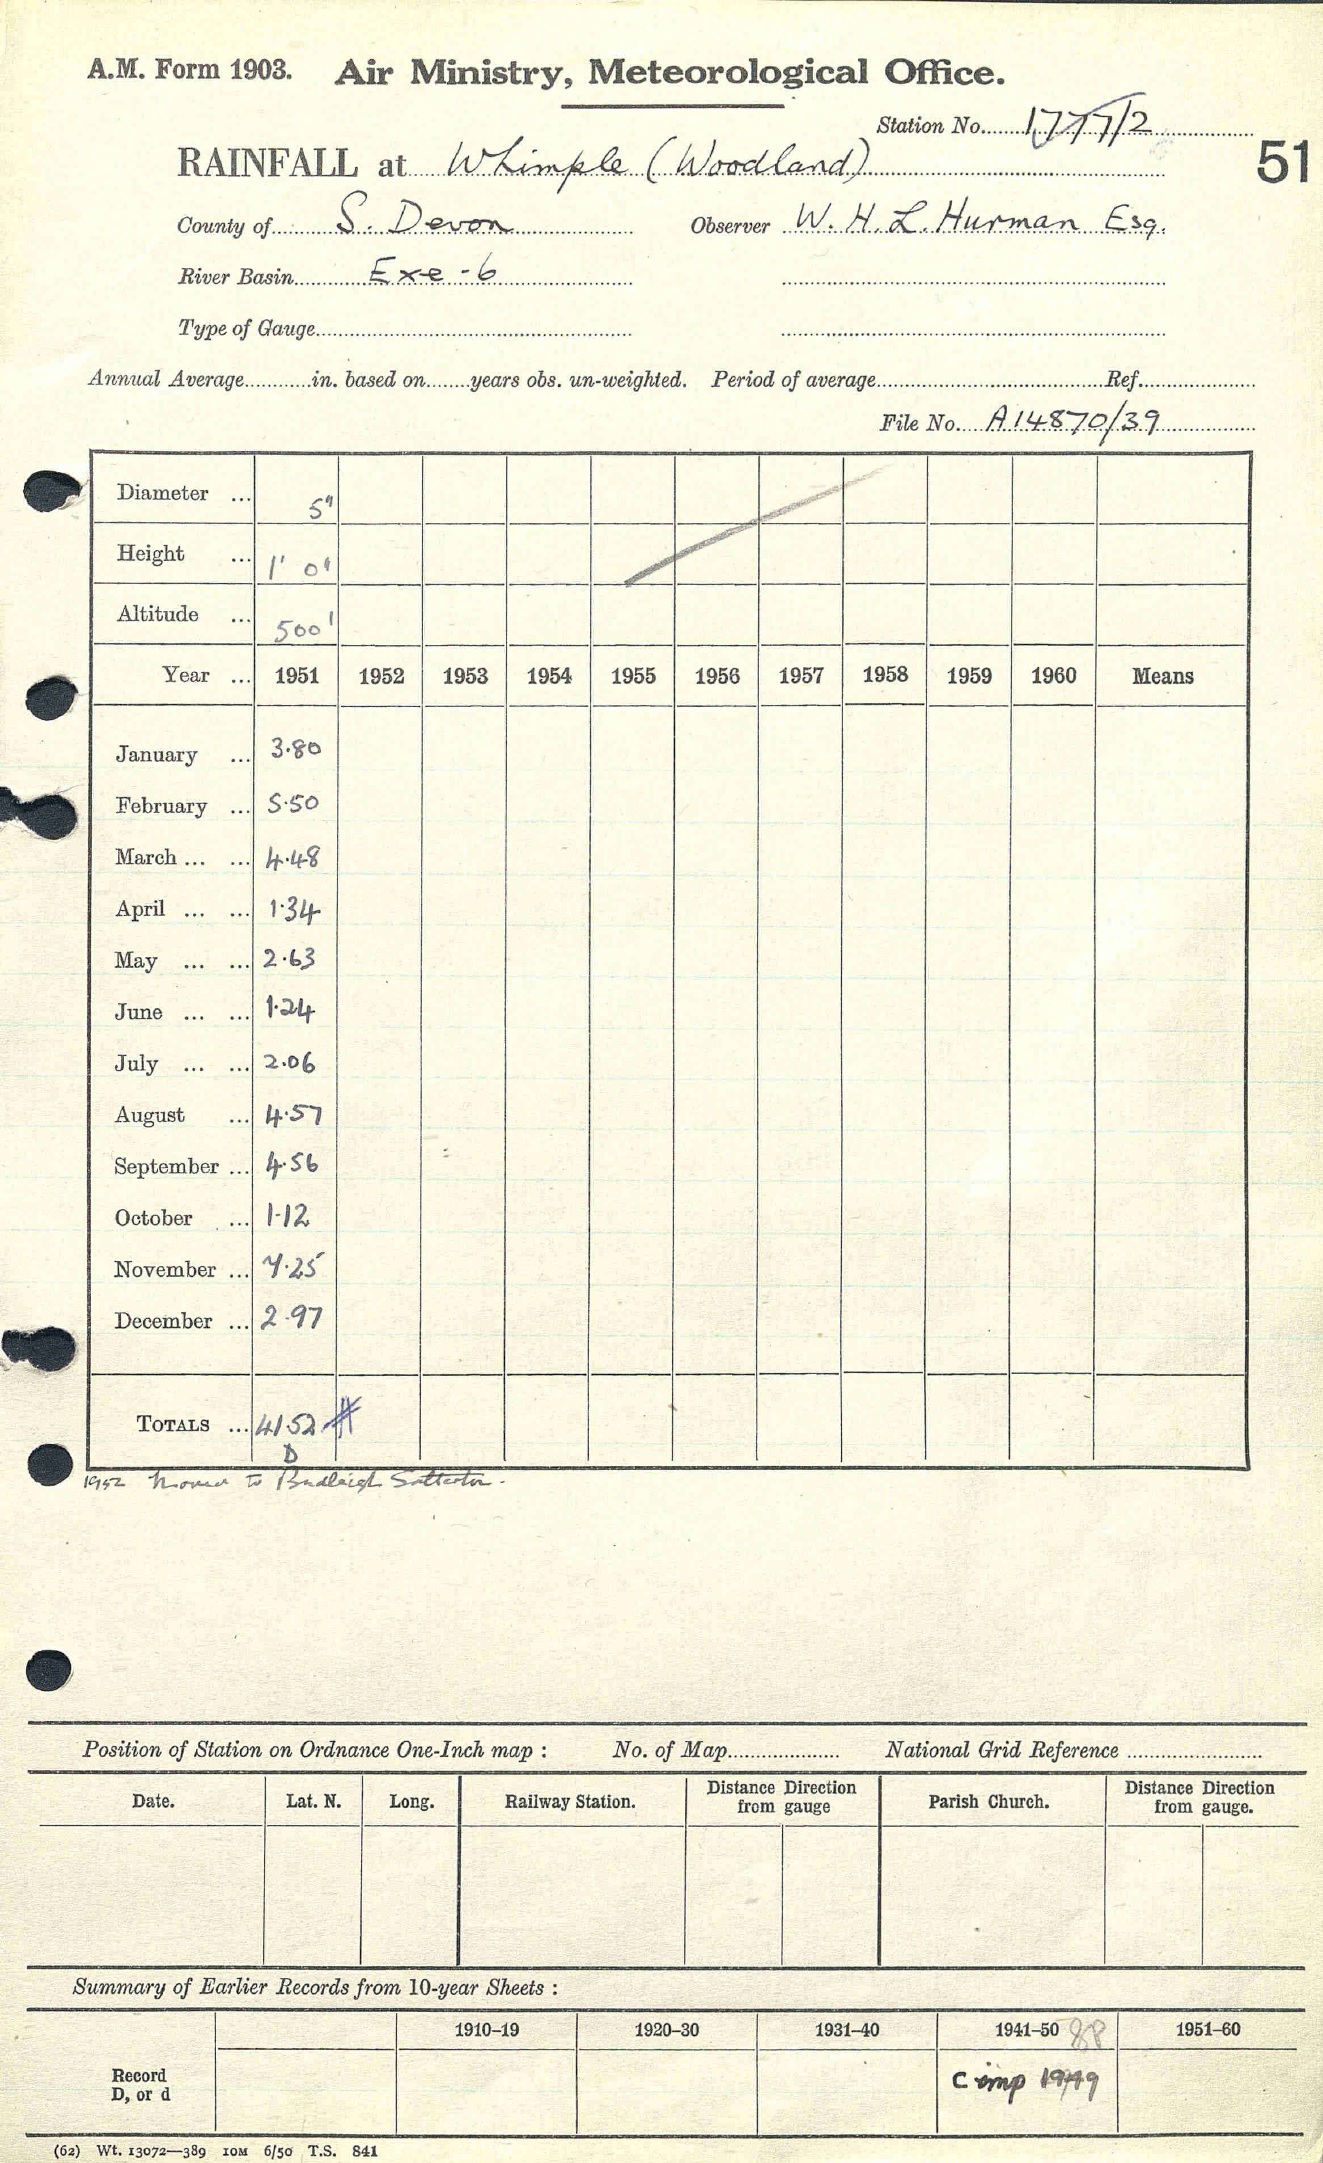 A.M. Form 1903. Air Ministry, Meteorological Office.
Station No. 1777/2
51
RAINFALL at Whimple (Woodland)
County of S. Devon Observer W. H. L. Hurman Esq.
River Basin Exe - 6
Type of Gauge
Annual Average in. based on years obs. un-weighted. Period of average Ref.
File No. A14870/39
Diameter ... 5"
Height ... 1' 0"
Altitude ... 500'
Year ... 1951 1952 1953 1954 1955 1956 1957 1958 1959 1960 Means
January ... 3.80
February ... 5.50
March ... ... 4.48
April ... ... 1.34
May ... ... 2.63
June ... ... 1.24
July ... ... 2.06
August ... 4.57
September ... 4.56
October ... 1.12
November ... 7.25
December ... 2.97
TOTALS ... 41.52 #
D
1952 moved to Budleigh Salterton.
Position of Station on Ordnance One-Inch map : No. of Map National Grid Reference
Date. Lat. N. Long. Railway Station. Distance Direction from gauge Parish Church. Distance Direction from gauge.
Summary of Earlier Records from 10-year Sheets :
1910–19 1920–30 1931–40 1941–50 1951–60
Record
D, or d
1949
(62) Wt. 13072—389 10M 6/50 T.S. 841